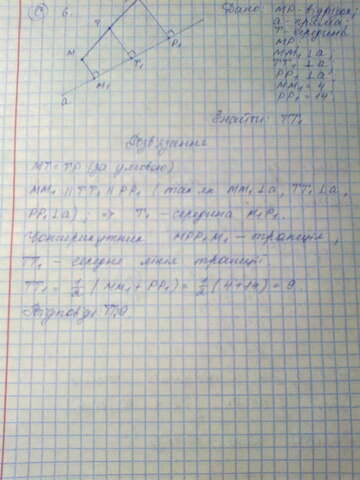 6. Дано: MP - відрізок,
a - пряма,
T - середина
MP
MM₁ ⊥ a
TT₁ ⊥ a
PP₁ ⊥ a
MM₁ = 4
PP₁ = 14
Знайти: TT₁
T
M
P₁
T₁
M₁
a
Розв'язання
MT = TP (за умовою)
MM₁ || TT₁ || PP₁ (так як MM₁ ⊥ a, TT₁ ⊥ a,
PP₁ ⊥ a); => T₁ - середина M₁P₁.
Чотирикутник MPP₁M₁ - трапеція,
TT₁ - середня лінія трапеції
TT₁ = 1/2 (MM₁ + PP₁) = 1/2 (4+14) = 9